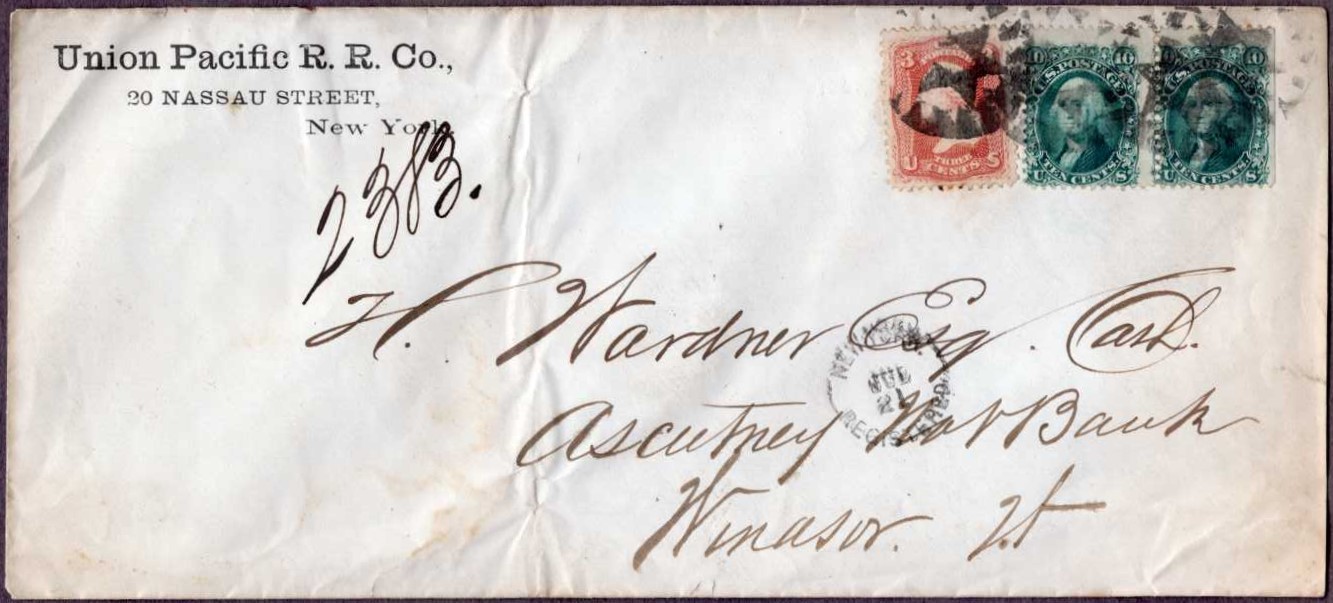 Union Pacific R. R. Co.,
20 NASSAU STREET,
New York.
2383.
3 3
U THREE CENTS S
10 10
U.S. POSTAGE
U TEN CENTS. S.
10 10
U.S. POSTAGE
U TEN CENTS. S.
H. Wardner Esq. Cash.
NEW YORK
JUL
21
REGISTERED
Ascutney Nat Bank
Windsor. Vt